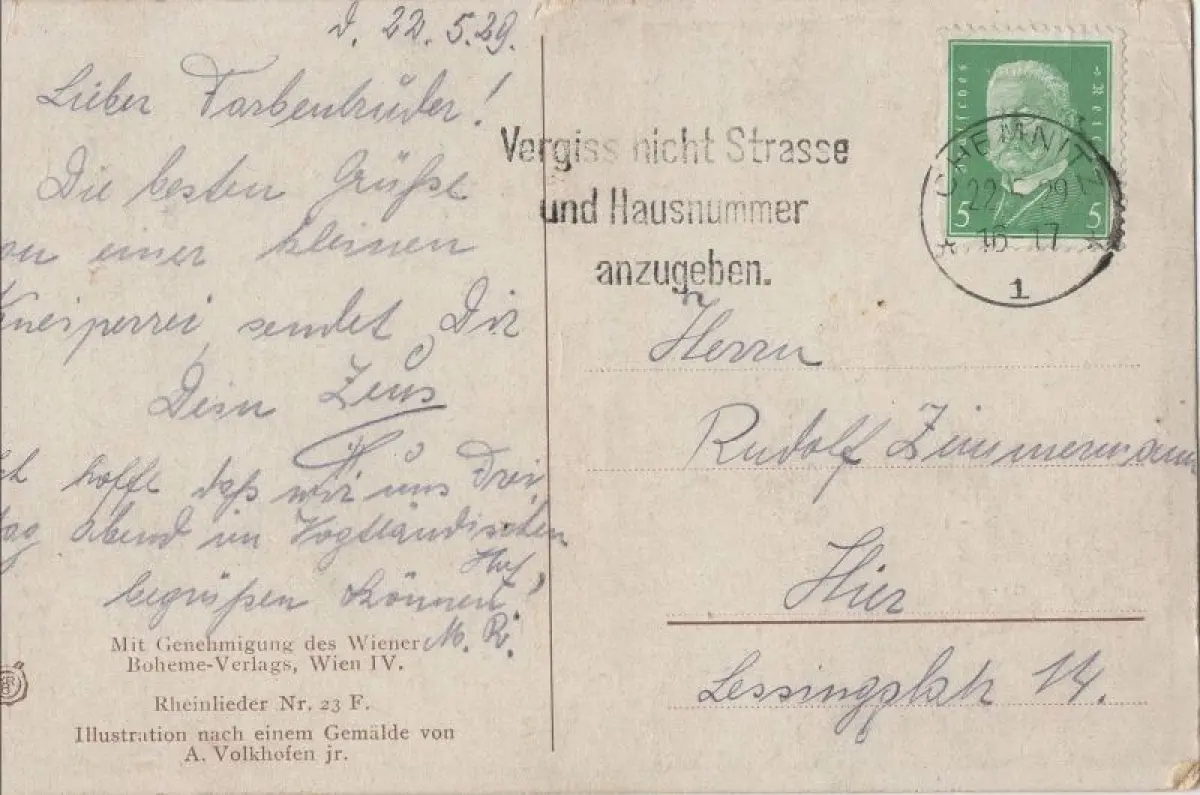 d. 22.5.29.
Lieber Farbenbruder!
Die besten Grüße
on einer kleinen
Kneiperrei sendet Dir
Dein Zeus
hofft daß wir uns Frei
tag Abend im Vogtländischen
Hof
begrüßen können!
M. R.
Mit Genehmigung des Wiener
Boheme-Verlags, Wien IV.
Rheinlieder Nr. 23 F.
Illustration nach einem Gemälde von
A. Volkhofen jr.
Vergiss nicht Strasse
und Hausnummer
anzugeben.
5 5
CHEMNITZ
22.5.29
* 16-17 *
1
Herrn
Rudolf Zimmermann
Hier
Lessingplatz 14.